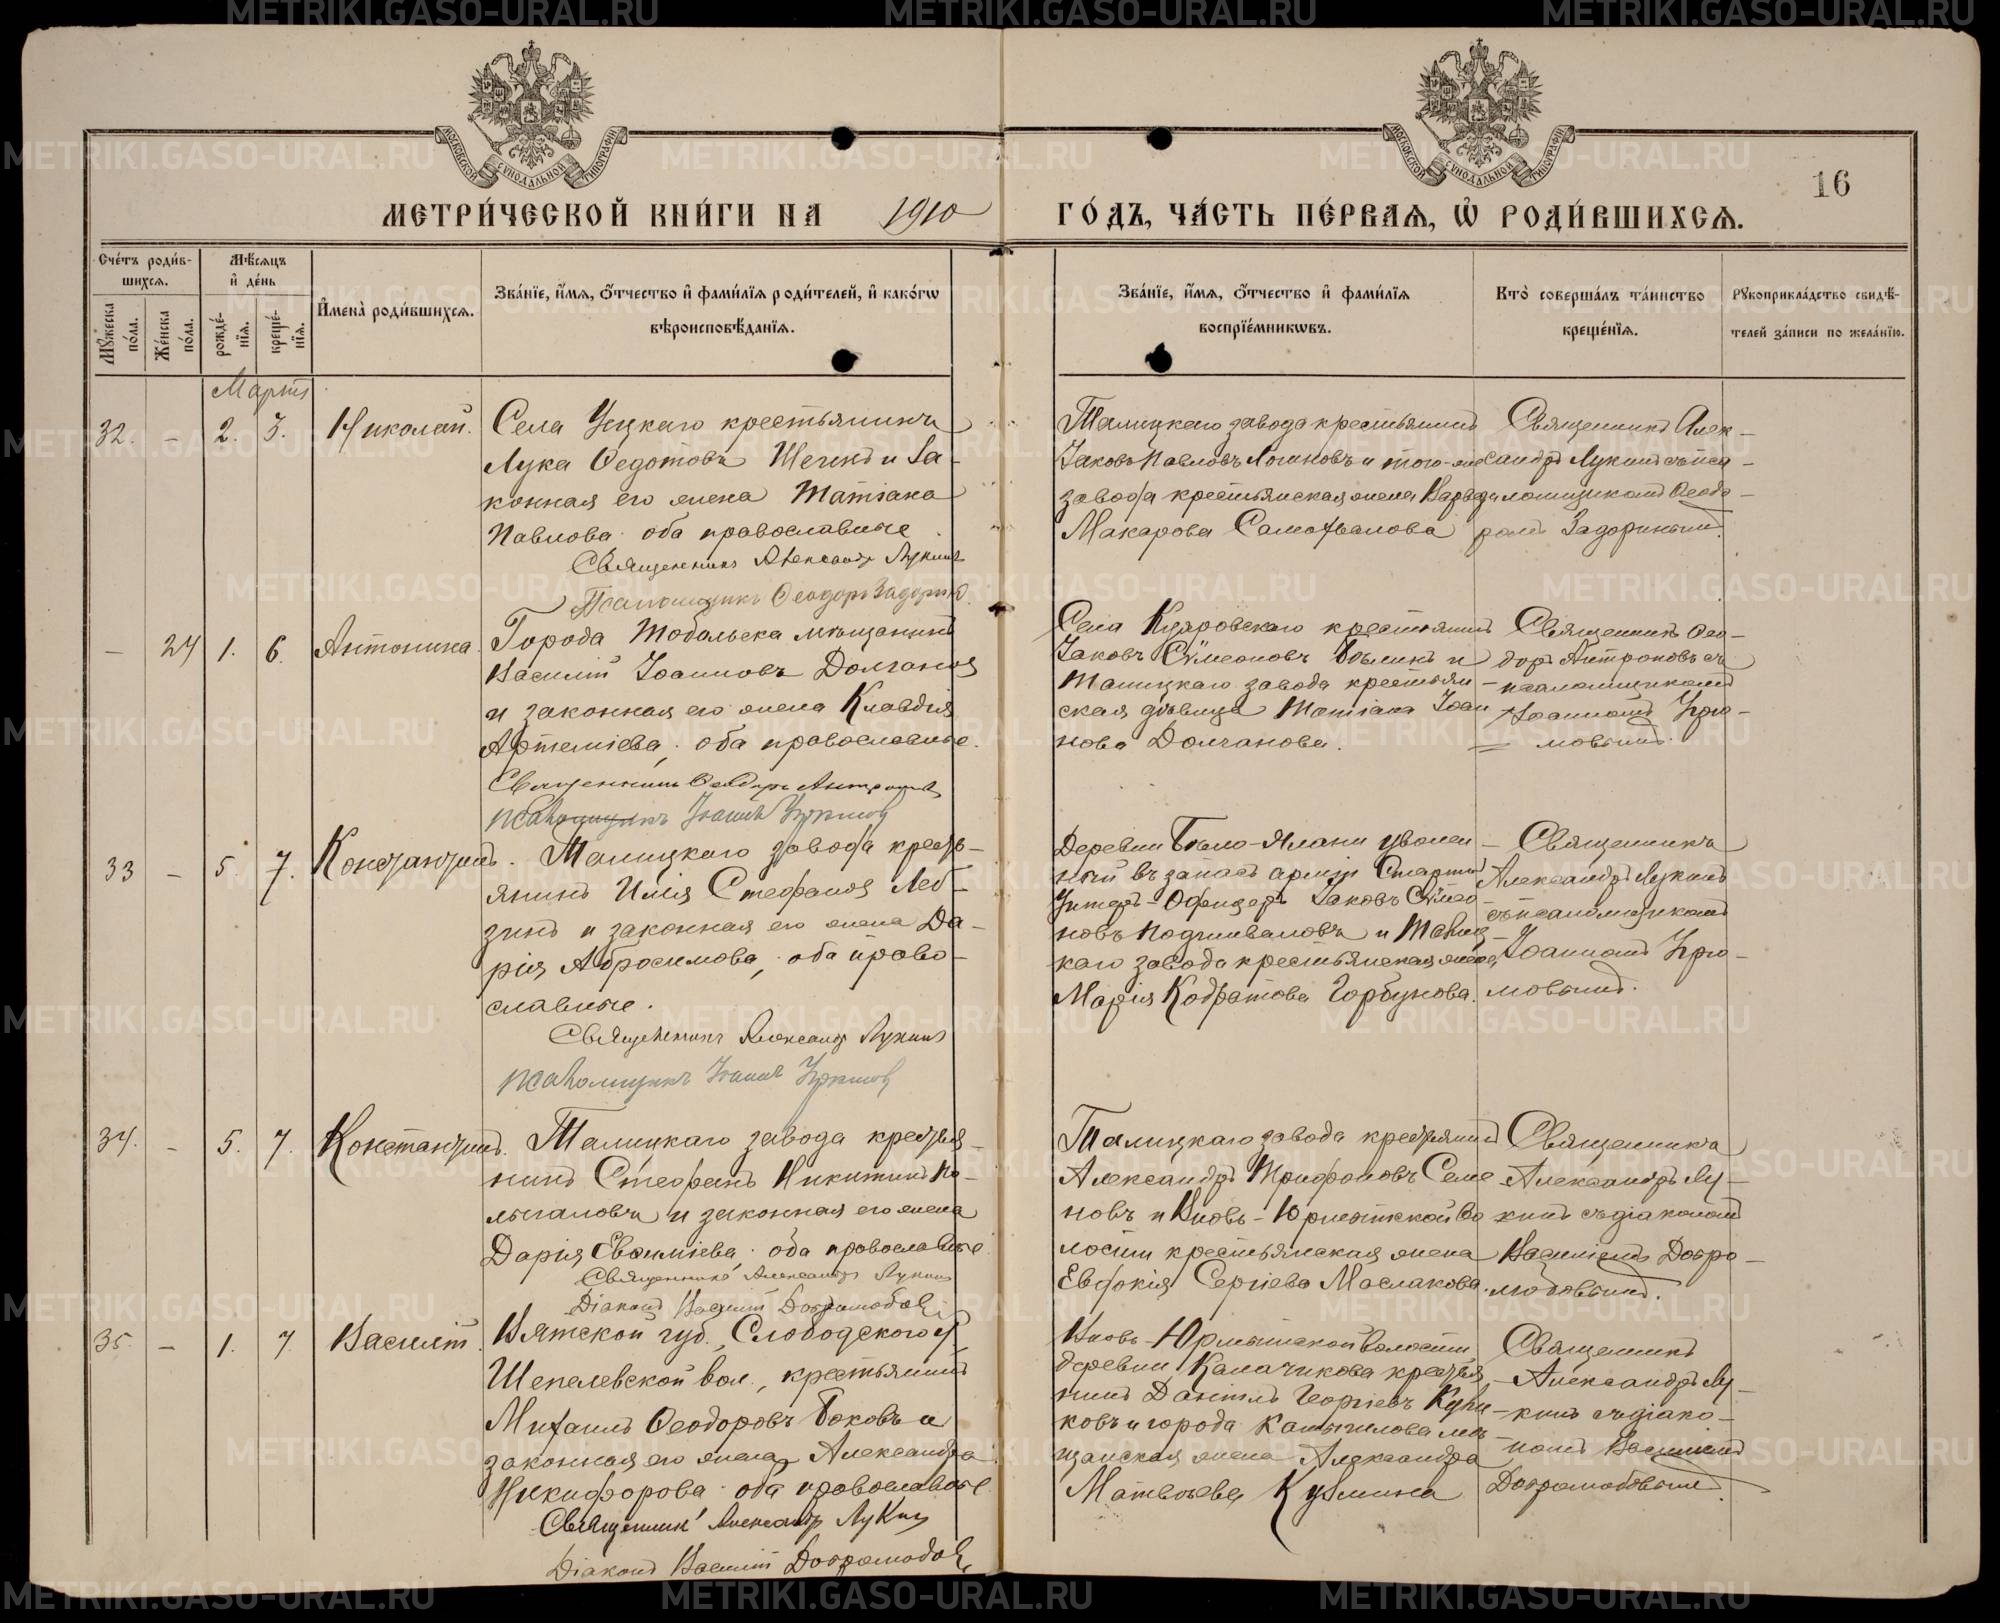 МЕТРИ́ЧЕСКОЙ КНИ́ГИ НА 1910 ГО́ДЪ, ЧА́СТЬ ПЕ́РВАѦ, Ѡ҆ РОДИ́ВШИХСѦ.
16
МОСКОВСКОЙ СѴНОДАЛЬНОЙ ТИПОГРАФІИ
МОСКОВСКОЙ СѴНОДАЛЬНОЙ ТИПОГРАФІИ
Сче́тъ роди́в-
шихсѧ.
Мꙋ́жеска по́ла.
Же́нска по́ла.
Мѣ́сѧцъ
и҆ де́нь
рожде́-
нїѧ.
креще́-
нїѧ.
И҆мена̀ роди́вшихсѧ.
Зва́нїе, и҆́мѧ, ѻ҆́тчество и҆ фами́лїѧ роди́телей, и҆ како́гѡ
вѣроисповѣ́данїѧ.
Зва́нїе, и҆́мѧ, ѻ҆́тчество и҆ фами́лїѧ
воспрїе́мникѡвъ.
Кто̀ соверша́лъ та́инство
креще́нїѧ.
Рꙋкоприкла́дство свидѣ́-
телей за́писи по жела́нїю.
Мартъ
32. - 2. 3. Николай.
Села Уецкаго крестьянинъ
Лука Ѳедотовъ Щегинъ и За-
конная его жена Татіана
Павлова оба православные
Священникъ Александръ Лукинъ
Псаломщикъ Ѳеодоръ Задоринъ.
Талицкаго завода крестьянинъ
Іаковъ Павловъ Логиновъ и того-же
завода крестьянская жена Варвара
Макарова Самофалова
Священникъ Алек-
сандръ Лукинъ съ пса-
ломщикомъ Ѳеодо-
ромъ Задоринымъ.
- 24 1. 6. Антонина.
Города Тобольска мѣщанинъ
Василій Іоанновъ Долганов
и законная его жена Клавдія
Артеміева, оба православные.
Священникъ Ѳеодоръ Антроповъ
псаломщикъ Іоаннъ Урюмов
Села Куяровскаго крестьянинъ
Іаковъ Сѵмеоновъ и
Талицкаго завода крестьян-
ская дѣвица Татіана Іоан-
нова Долганова.
Священникъ Ѳео-
доръ Антроповъ съ
псаломщикомъ
Іоанномъ Урю-
мовымъ.
33 - 5. 7. Константинъ.
Талицкаго завода кресть-
янинъ Илія Стефанов
и законная его жена Да-
рія Абросимова, оба право-
славные.
Священникъ Александръ Лукинъ
псаломщикъ Іоаннъ Урюмов
Деревни Бѣло-Яланки уволен-
ный въ запасъ арміи Старшій
Унтеръ-Офицеръ Іаковъ Сѵмео-
новъ Подшиваловъ и Талиц-
каго завода крестьянская жена,
Марія Кодратова Горбунова.
Священникъ
Александръ Лукинъ
съ псаломщикомъ
Іоанномъ Урю-
мовымъ.
34. - 5. 7. Константинъ.
Талицкаго завода крестья-
нинъ Стефанъ Никитинъ По-
лыгаловъ и законная его жена
Дарія Евѳиміева оба православные
Священникъ Александръ Лукинъ
Діаконъ Василій Добролюбовъ
Талицкаго завода крестьянинъ
Александръ Трифоновъ Семе-
новъ и Вновь-Юрмытской Во-
лости крестьянская жена
Евдокія Сергіева Маслакова.
Священникъ
Александръ Лу-
кинъ съ діакономъ
Василіемъ Добро-
любовымъ.
35. - 1. 7. Василій.
Вятской губ., Слободского у.,
Шепелевской вол., крестьянинъ
Михаилъ Ѳеодоровъ Боковъ и
законная его жена Александра
Никифорова оба православные
Священникъ Александръ Лукинъ
Діаконъ Василій Добролюбовъ
Вновь-Юрмытской Волости
деревни Калачикова крестья-
нинъ Даніилъ Георгіевъ
и города Камышлова мѣ-
щанская жена Александра
Матвѣева Кузмина
Священникъ
Александръ Лу-
кинъ съ діако-
номъ Василіемъ
Добролюбовымъ.
METRIKI.GASO-URAL.RU